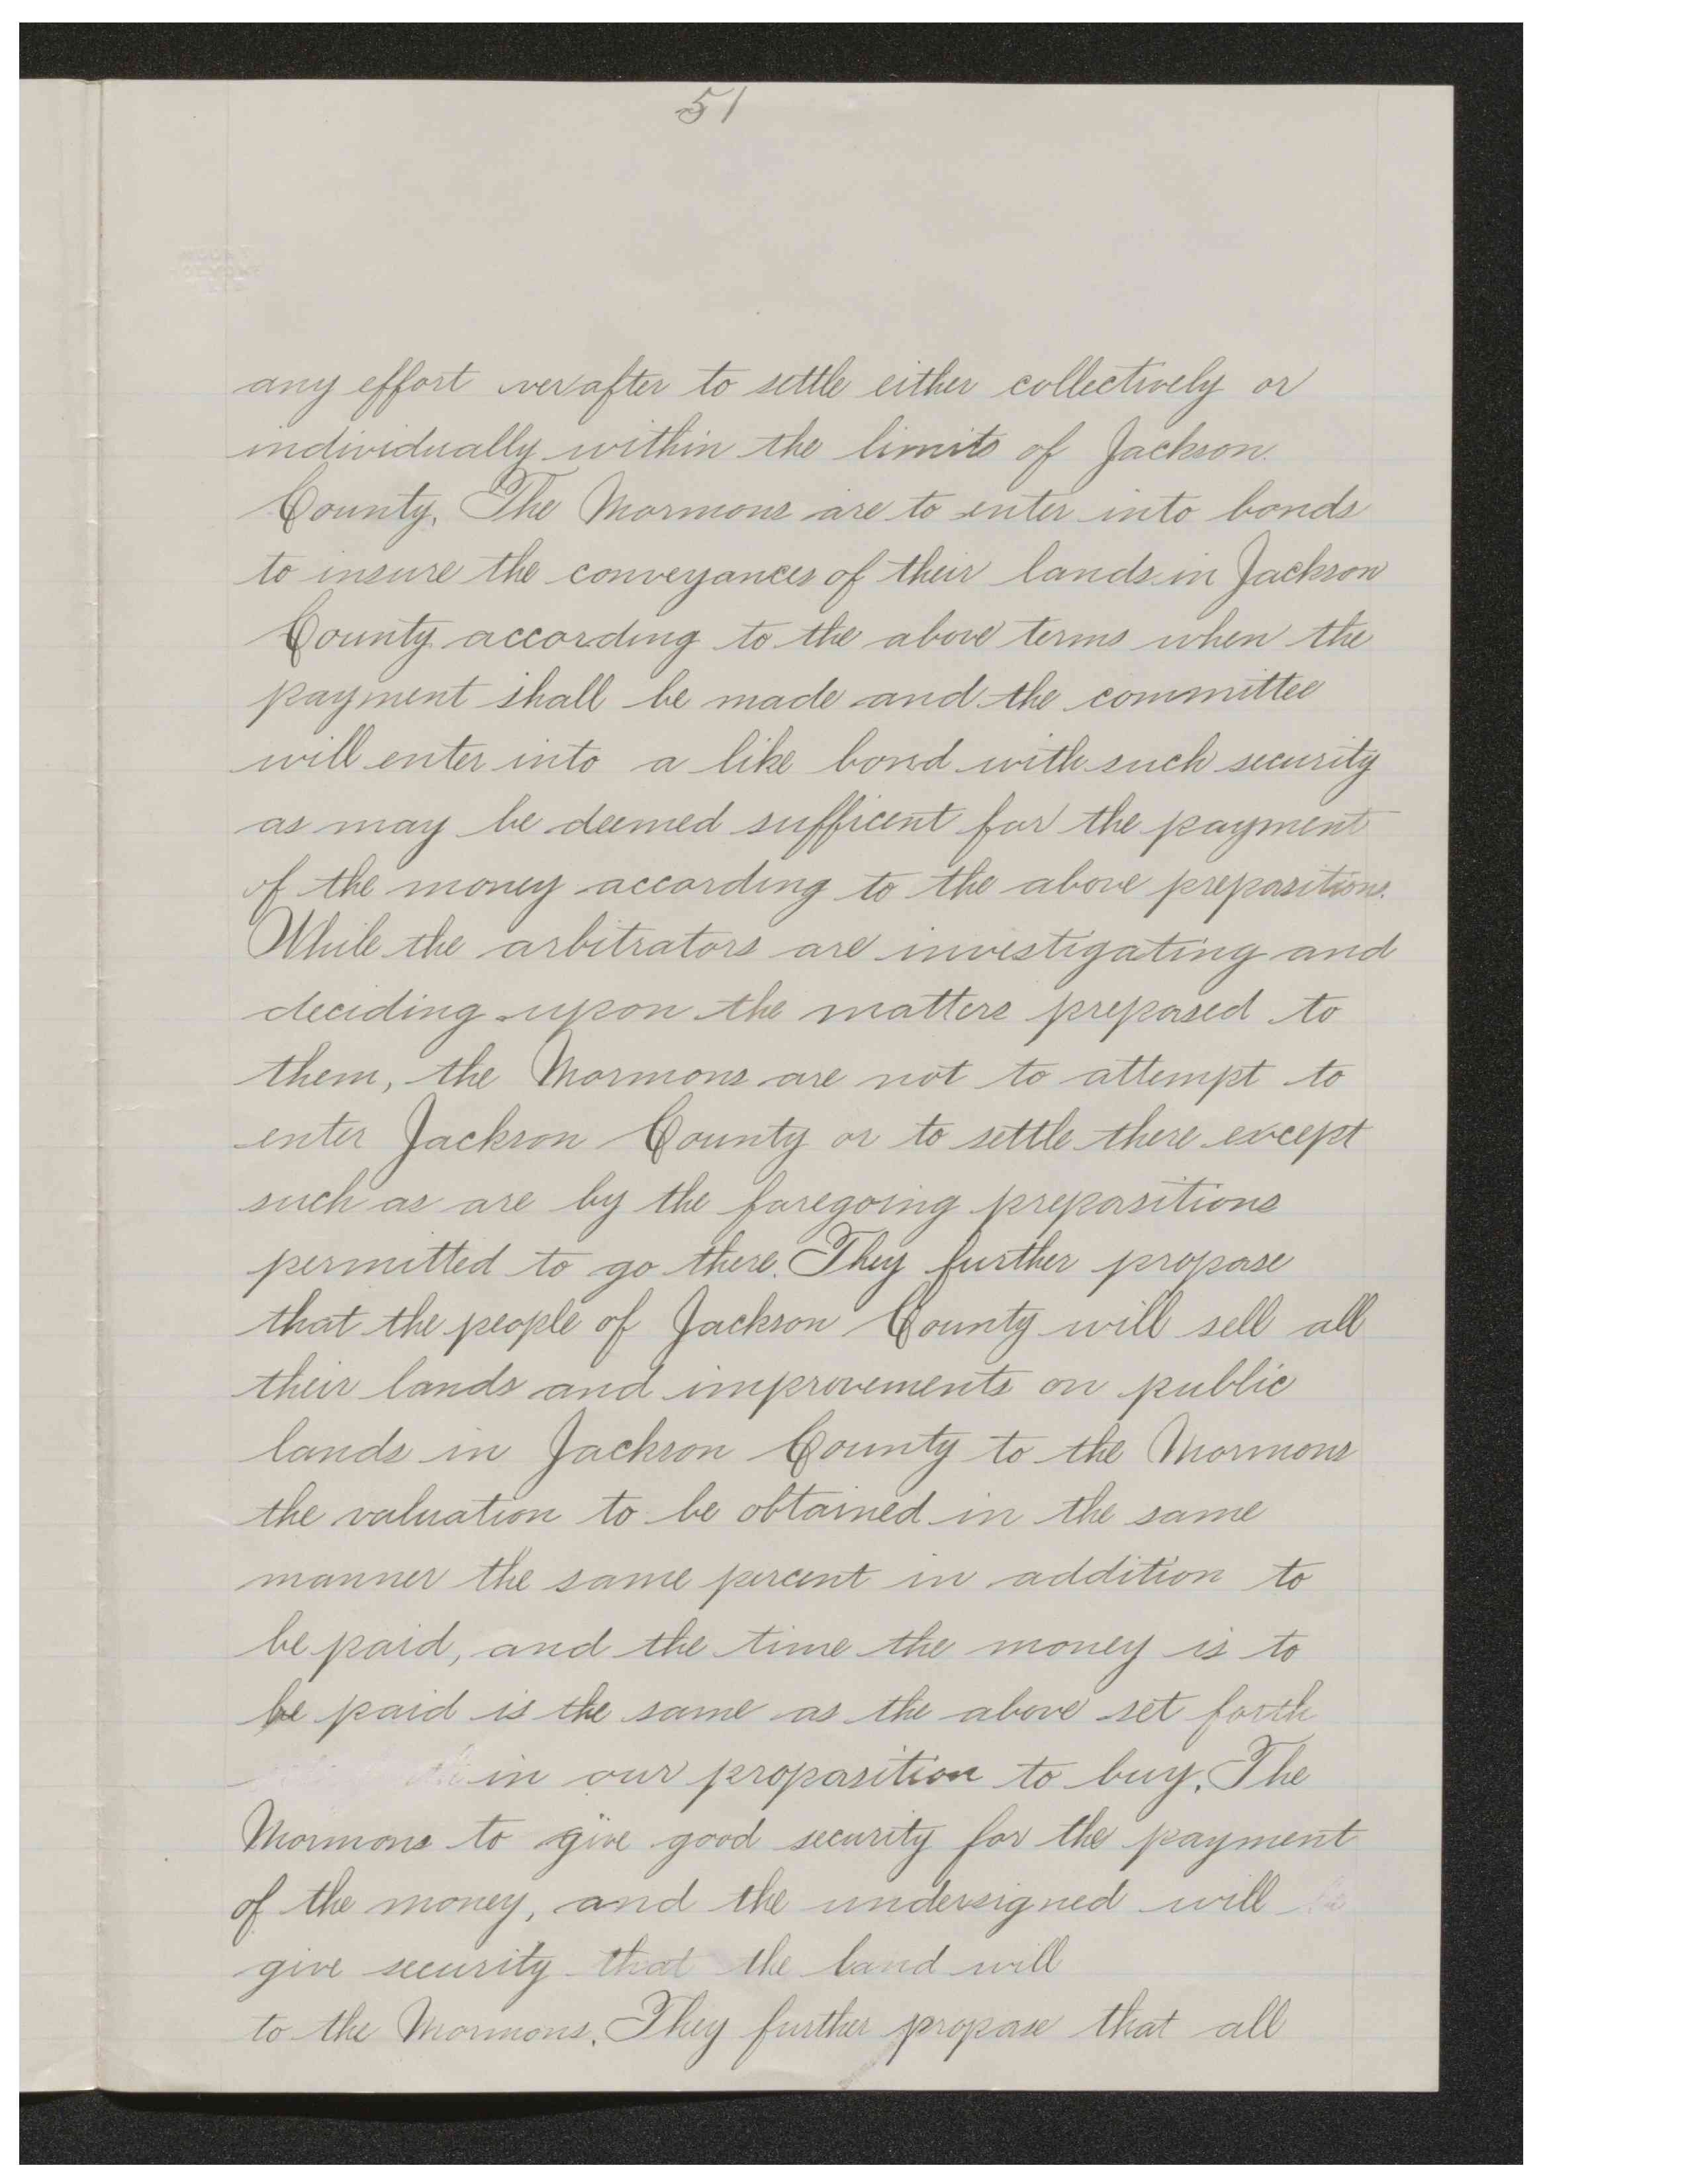 51
any effort ever after to settle either collectively or
individually within the limits of Jackson
County. The Mormons are to enter into bonds
to insure the conveyances of their lands in Jackson
County according to the above terms when the
payment shall be made and the committee
will enter into a like bond with such security
as may be deemed sufficent for the payment
of the money according to the above prepositions.
While the arbitrators are investigating and
deciding upon the matters preposed to
them, the Mormons are not to attempt to
enter Jackson County or to settle there except
such as are by the foregoing prepositions
permitted to go there. They further propose
that the people of Jackson County will sell all
their lands and improvements on public
lands in Jackson County to the Mormons
the valuation to be obtained in the same
manner the same percent in addition to
be paid, and the time the money is to
be paid is the same as the above set forth
in our proposition to buy. The
Mormons to give good security for the payment
of the money, and the undersigned will
give security that the land will
to the Mormons. They further propose that all